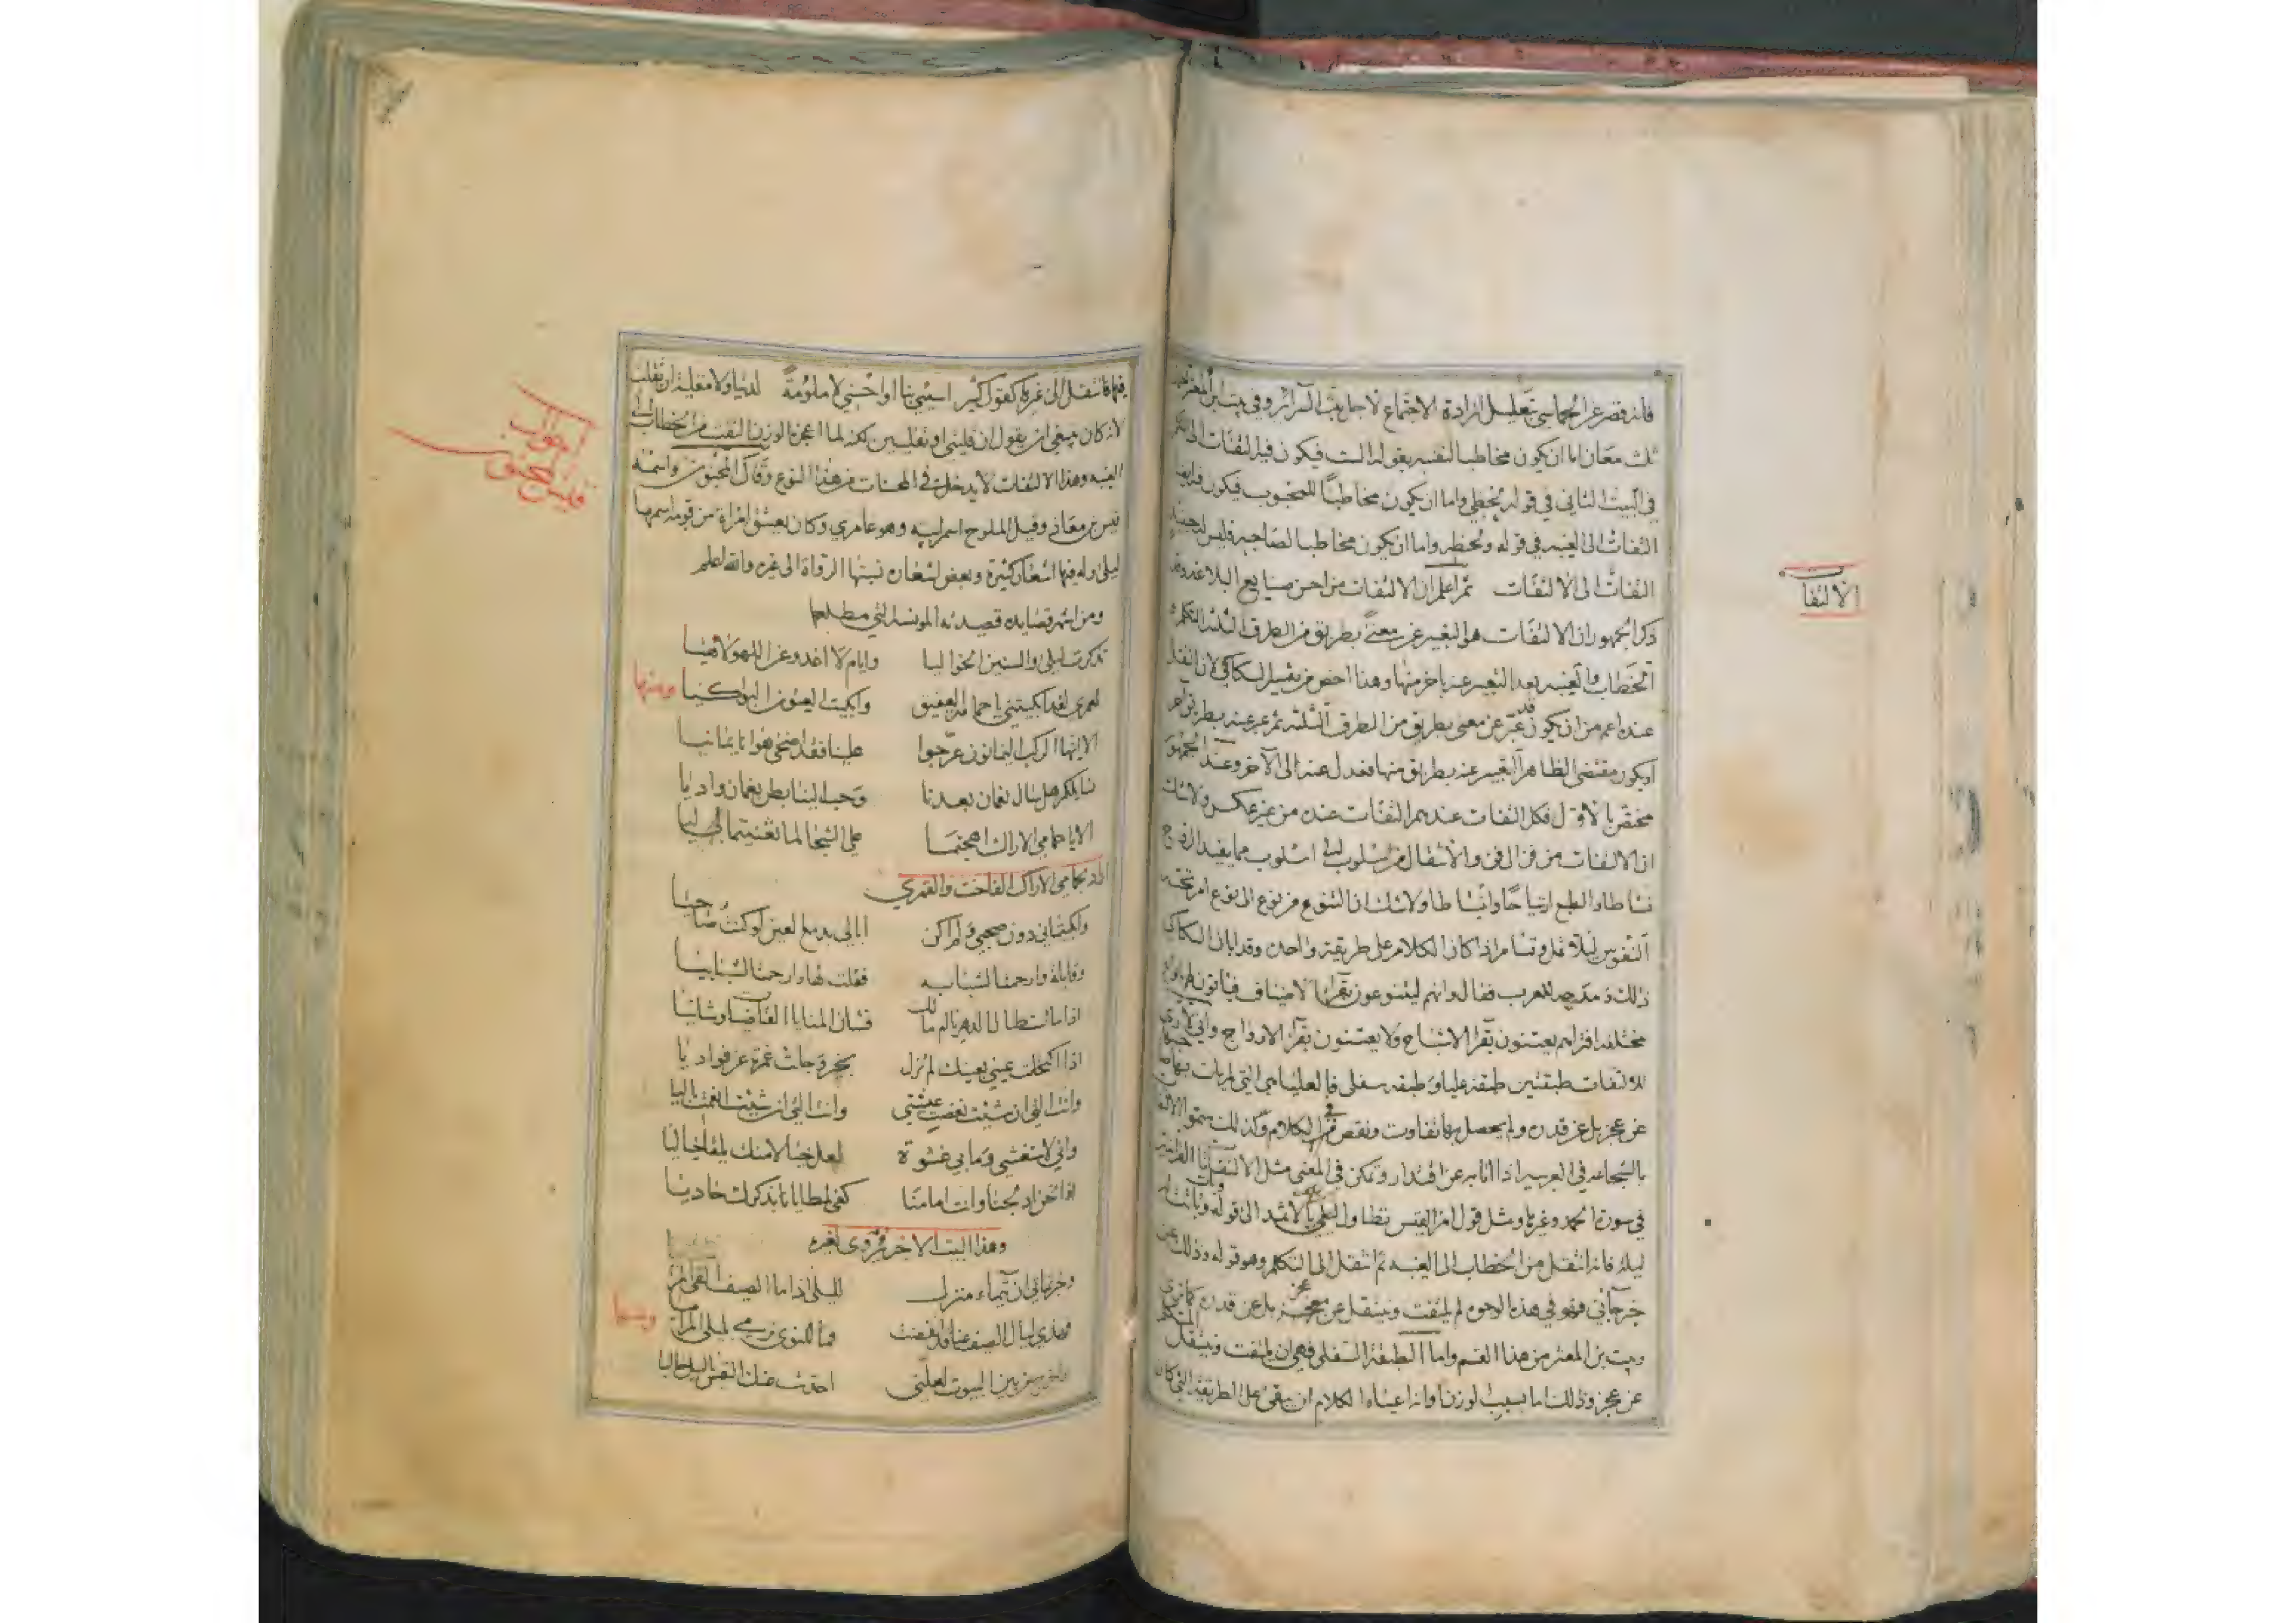 فانه قصر عن الحماسي تعليل ارادة الاجتماع لاجل بث السرائر وفي بيت ابن المعتز
ثلث معان اما ان يكون مخاطبا لنفسه بقوله الست فيكون فيه التفات الى التكلم
في البيت الثاني في قوله نحظى واما ان يكون مخاطبا للمحبوب فيكون فيه ايضا
التفات الى الغيبه في قوله واما ان يكون مخاطبا لصاحبه فليس
التفات الى الالتفات ثم اعلم ان الالتفات من احسن صنايع البلاغة وقد
ذكر الجمهور ان الالتفات هو التعبير عن معنى بطريق من الطرق الثلثه التكلم
الخطاب والغيبه بعد التعبير عنه باخر منها وهذا اخص من تفسير السكاكي لان النقل
عنده اعم من ان يكون قد عبر عن معنى بطريق من الطرق الثلثه ثم عبر عنه بطريق اخر
او يكون مقتضى الظاهر التعبير عنه بطريق منها فعدل عنه الى الآخر وعند الجمهور
مختص بالاول فكل التفات عندهم التفات عنده من غير عكس ولا شك
ان الالتفات من فن الى فن والانتقال من اسلوب الى اسلوب مما يفيد الروح
نشاطا والطبع ارتياحا وانبساطا ولا شك ان التنوع من نوع الى نوع امر
النفوس ليلا تمل وتسام اذا كان الكلام على طريقة واحدة وقد ابان السكاكي
ذلك ذ مدحه للعرب فقال وانهم ليتنوعون بقرى الاضياف
مختلفه افتراهم يعتنون بقرى الاشباح ولا يعتنون بقرى الارواح واني لارى
للالتفات طبقتين طبقة عليا وطبقه سفلى فالعليا هي التي لم يات بها
عن عجز بل عن قدره ولم يحصل بها تفاوت ونقص في الكلام وكذلك سموا الالتفات
بالشجاعه في العربيه اذا اتا به عن اقتدار وتمكن في المعنى مثل الالتفات القرانيه
في سورة الحمد وغيرها ومثل قول امرا القيس تطاول ليلك بالاثمد الى قوله وبات وباتت له
ليلة فانه انتقل من الخطاب الى الغيبه ثم انتقل الى التكلم وهو قوله وذلك من
خبر جآني فهو في هذه الوجوه لم يلتفت وينتقل عن عجز بل عن قدره كما ترى
وبيت بن المعتز من هذا القسم واما الطبقة السفلى فهي ان يلتفت وينتقل المتكلم
عن عجز وذلك اما بسبب الوزن واذا اعياه الكلام ان يبقى على الطريقة التي كان
الالتفات
فيها فانتقل الى غيرها كقول كثير اسيئي بنا او احسني لا ملومة لدينا ولا مقلية ان تقلت
لانه كان ينبغي ان يقول ان قليتي او تقلين لكنه لما اعجزه الوزن التفت من الخطاب الى
الغيبه وهذا الالتفات لا يدخل في المحسنات من هذا النوع وقال المجنون واسمه
قيس بن معاذ وقيل الملوح اسم ابيه وهو عامري وكان يعشق امراة من قومه اسمها
ليلى وله فيها اشعار كثيرة وبعض اشعاره نسبتها الرواة الى غيره والله اعلم
ومن اشهر قصايده قصيدته المونسه التي مطلعها
تذكرت ليلى والسنين الخواليا وايام لا اعدو عن اللهو لاهيا
لعمري لقد ابكيتني يا حمامة العقيق وابكيت العيون البواكيا ومنها
الا ايها الركب اليمانون عرجوا علينا فقد اضحى هوانا يمانيا
نسايلكم هل سال نعمان بعدنا وحب الينا بطن نعمان واديا
الا يا حمامي الاراك اهجتما علي الشجا لما تغنيتما ليا
اراد بحمامي الاراك الفاخت والقمري
وابكيتماني دون صحبي ولم اكن ابالي بدمع العين لو كنت خاليا
وقايلة وارحمتا لشبابه فقلت لها وارحمتا لشبابيا
اذا ما استطال الدهر يا ام مالك فشان المنايا القاضيات وشانيا
اذا اكتحلت عيني بعينك لم نزل بخير وجلت غمرة عن فواديا
وانت التي ان شئت نغصت عيشتي وانت التي ان شئت انعمت باليا
واني لاستغشي وما بي غشوة لعل خيالا منك يلقا خياليا
اذا نحن ادلجنا وانت امامنا كفى لمطايانا بذكراك حاديا
وهذا البيت الاخر مروى لغيره
وخبرتماني ان تيماء منزل لليلى اذا ما الصيف القى المراسيا
فهذي ليال الصيف عنا قد انقضت فما للنوى ترمي بليلى المراميا ومنها
واخرج من بين البيوت لعلني احدث عنك النفس بالليل خاليا
احوال
قيس المجنون